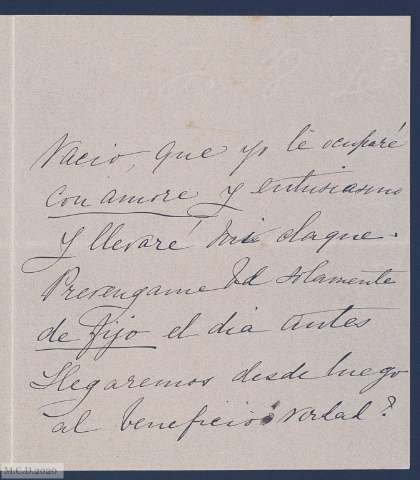 vacio, que yo le ocuparé
con amore y entusiasmo
y llevaré claque.
Prevengame Vd solamente
de fijo el dia antes
Llegaremos desde luego
al beneficio verdad?
M.C.D.2020